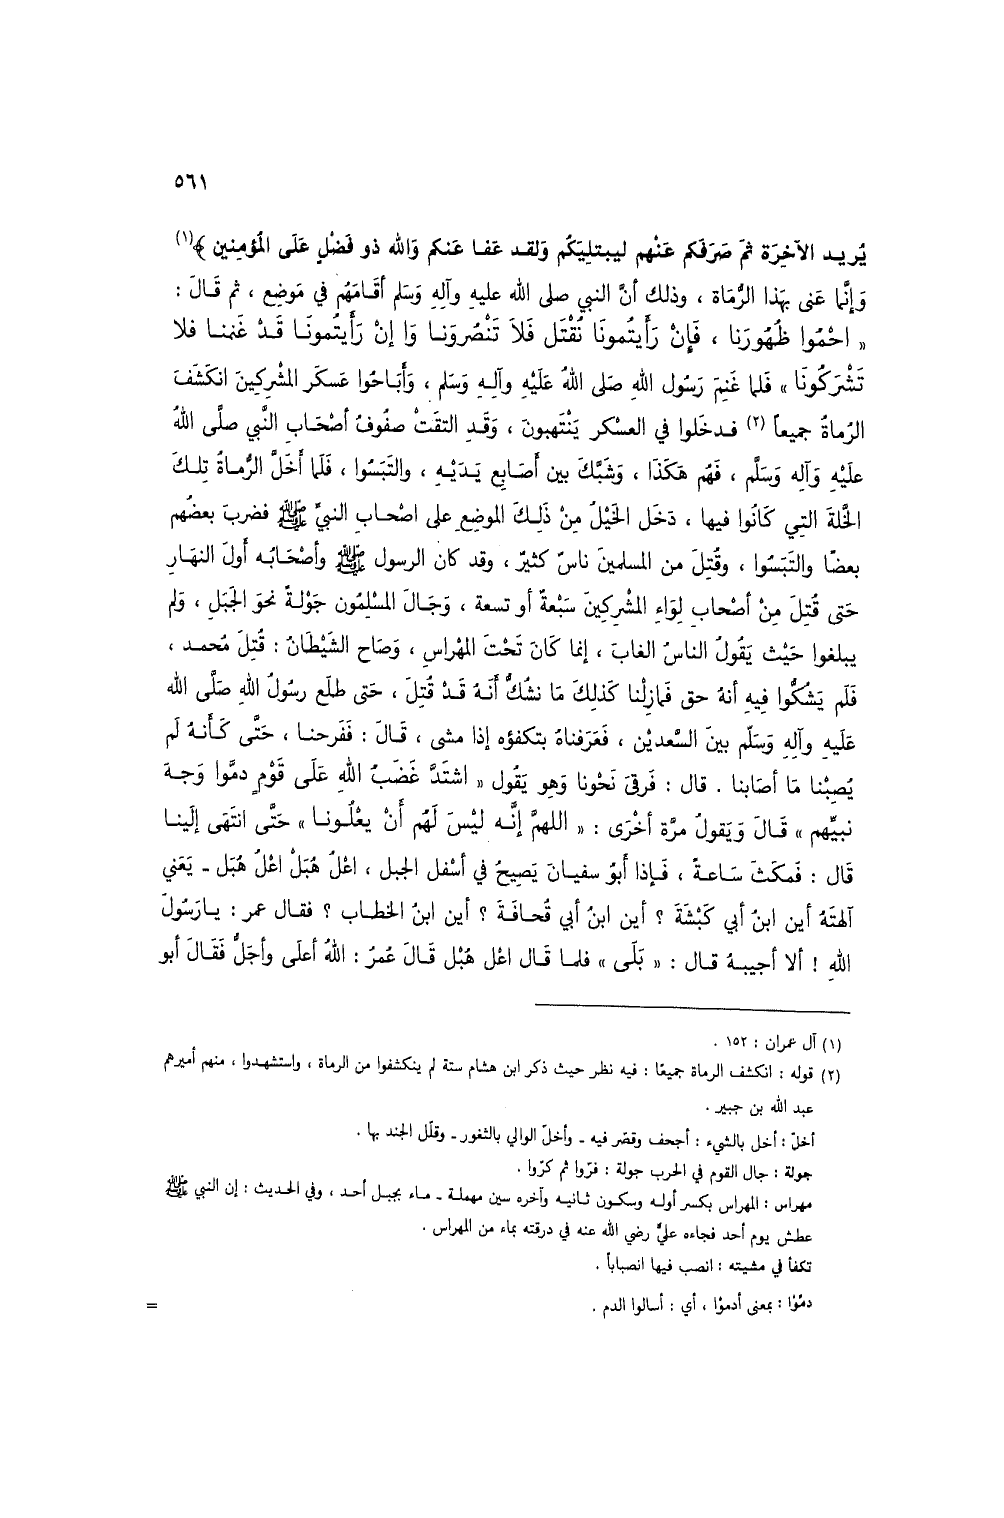 ٥٦١
يُريد الآخِرَة ثمَ صَرَفَكم عَنْهم ليبتلِيَكُم وَلقد عَفا عَنكم وَالله ذو فَضْلٍ عَلَى المُؤمِنِين ﴾(١)
وَإنَّما عَنى بهَذا الرُّمَاة ، وذلك أنَّ النبي صلى الله عليهِ وآلِهِ وَسَلم أقَامَهُم في مَوضِع ، ثم قَالَ :
« احْمُوا ظُهُورَنا ، فَإنْ رَأَيتُمونَا نُقْتَل فَلاَ تَنْصُرَونَـا وَا إنْ رَأَيتُمونَـا قَدْ غَنِمنـا فلا
تَشْرَكُونَا » فَلما غَنِمَ رَسُول اللهِ صَلى اللهُ عَلَيْهِ وآلـهِ وَسَلم ، وَأَبَاحُوا عَسكَر المُشْرِكِينَ انكَشَفَ
الرُماةُ جميعاً (٢) فـدخَلوا في العسْكر يَنْتَهبونَ ، وَقَـدِ التقَتْ صفُوفُ أصْحَابِ النَّبي صلَّى اللهُ
علَيْهِ وَآلِه وَسَلَّم ، فَهُم هَكَذَا ، وَشَبَّكَ بين أصَابِع يَـدَيْـهِ ، والتَبَسُوا ، فَلَما أَخَلَّ الرُّمـاةُ تِلـكَ
الخَلةَ التِي كَانُوا فيها ، دَخَل الخَيْلُ مِنْ ذَلِـكَ الموضِع على اصْحابِ النبيِّ ﷺ فضربَ بعضُهم
بعضًا والتَبَسُوا ، وقُتِلَ من المسلمينَ ناسٌ كثيرٌ ، وقد كان الرسول ﷺ وأصْحَابُـه أولَ النهَارِ
حَتى قُتِلَ مِنْ أصْحابِ لِوَاءِ المُشْرِكِينَ سَبْعةٌ أو تسعة ، وَجَالَ المُسْلِمُون جَوْلـةً نحوَ الجَبَلِ ، وَلم
يبلغوا حَيْث يَقُولُ الناسُ الغابَ ، إنما كَانَ تَحْتَ المِهْراسِ ، وَصَاحِ الشَيْطَانُ : قُتِلَ مُحمـد ،
فَلَم يَشُكُّوا فِيهِ أنهُ حق فَمازِلْنا كَذلِكَ مَا نشُكُّ أنَـهُ قَـدْ قُتِلَ ، حَتى طلَع رسولُ اللهِ صَلَّى الله
عَلَيهِ وآلهِ وَسَلّم بينَ السَّعديْن ، فَعَرَفناهُ بتكفؤه إذا مشى ، قَـالَ : فَفَرحنـا ، حَتَّى كَـأَنـهُ لَم
يُصِبْنا مَا أصَابنا . قال : فَرقىَ نَحْونا وَهو يَقُول « اشتَدَّ غَضَبُ اللهِ عَلَى قَوْمٍ دمَّوا وَجـهَ
نبيِّهم » قَـالَ وَيَقولُ مرَّة أخْرَى : « اللهمَّ إنَّـه ليْسَ لَهُم أَنْ يعْلُـونـا » حَتَّى انتَهَى إلَينـا
قَال : فَمكَثَ سَـاعـةً ، فَـإذا أَبوُ سفيـانَ يَصيحُ في أسْفل الجبل ، اعْلُ هُبَلْ اعْلُ هُبَل ـ يَعَني
آلهتَهُ أين ابنُ أبي كَبْشَةَ ؟ أين ابنُ أبي قُحـافَـةَ ؟ أين ابنُ الخطـاب ؟ فقـال عمر : يـارَسُولَ
اللهِ ! ألا أجيبـهُ قـال : « بَلَى » فلمـا قَـال اعْل هُبَل قَـالَ عُمرُ : اللهُ أعلَى وأجَلُّ فَقَالَ أبو
(١) آل عمران : ١٥٢ .
(٢) قوله : انكشف الرماة جميعًا : فيه نظر حيث ذكر ابن هشام ستة لم ينكشفوا من الرماة ، واستشهـدوا ، منهم أميرهم
عبد الله بن جبير .
أخلّ : أخل بالشيء : أجحف وقصّر فيه ـ وأخلّ الوالي بالثغور ـ وقلّل الجند بها .
جولة : جال القوم في الحرب جولة : فرّوا ثم كرّوا .
مهراس : المهراس بكسر أولـه وسكـون ثـانيـه وآخره سين مهملـة ـ مـاء بجبـل أحـد ، وفي الحديث : إن النبي ﷺ
عطش يوم أحد فجاءه عليٌّ رضي الله عنه في درقته بماء من المهراس .
تكفأ في مشيته : انصب فيها انصباباً .
دمُّوْا : بمعنى أدموْا ، أي : أسالوا الدم .
=